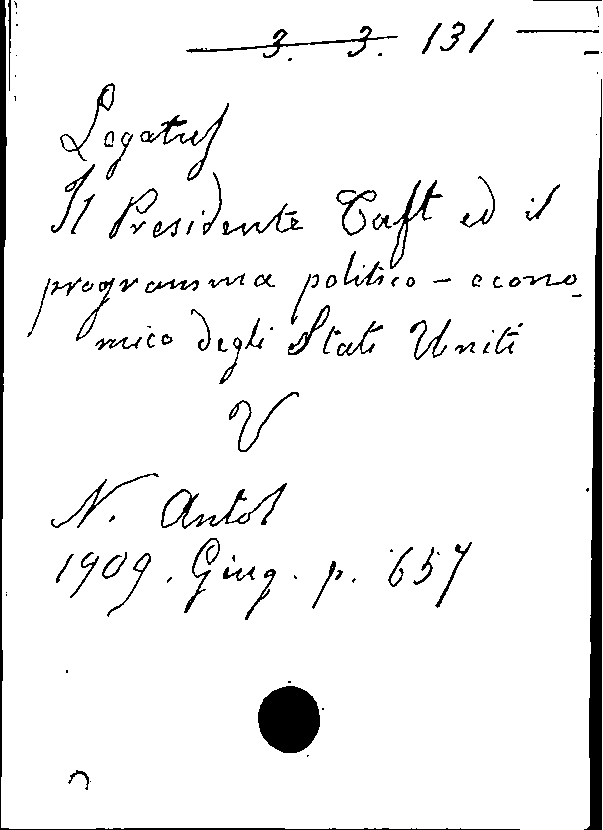 3. 3. 131
Legatus
Il Presidente Taft ed il
programma politico - econo-
mico degli Stati Uniti
V
N. Antol
1909. Giug. p. 657